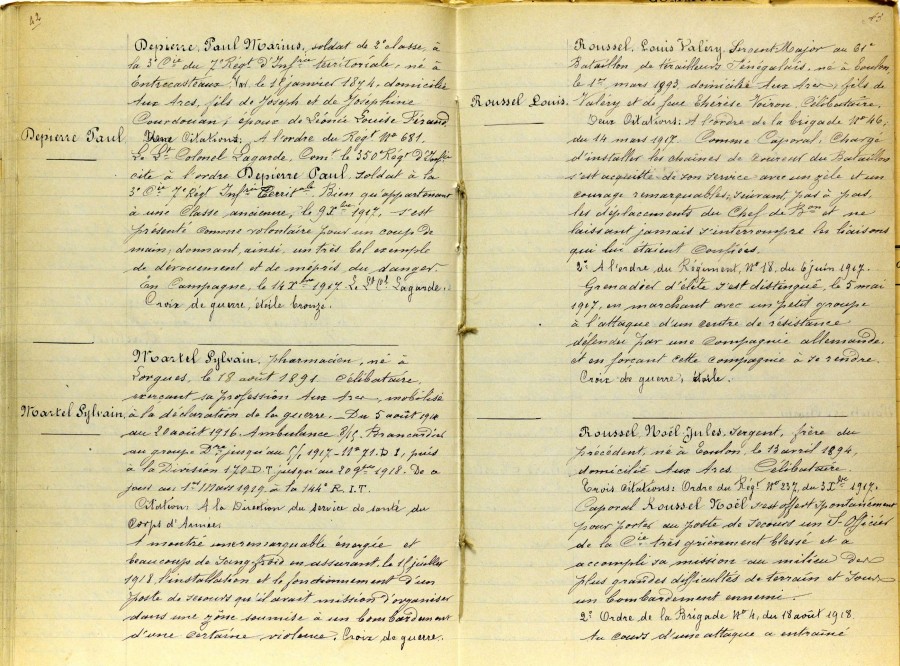 42
Depierre, Paul Marius, soldat de 2e classe, à
la 3e Cie du 7e Régt d'Infrie territoriale, né à
Entrecasteaux Var le 1er janvier 1874, domicilié
Aux Arcs, fils de Joseph et de Joséphine
Courdouan; époux de Léonie Louise
Depierre Paul
Citations: A l'ordre du Régt No 681.
Le Lt Colonel Lagarde, Comt le 350e Régt d'Infrie
cite à l'ordre Depierre Paul, soldat à la
3e Cie 7e Régt Infrie Territale Bien qu'appartenant
à une classe ancienne, le 9 Xbre 1917, s'est
présenté comme volontaire pour un coup de
main; donnant ainsi un très bel exemple
de dévouement et de mépris du danger.
En Campagne, le 14 Xbre 1917 Le Lt Cl Lagarde.
Croix de guerre, étoile bronze.
Martel Sylvain, pharmacien, né à
Lorgues, le 18 août 1891 Célibataire,
exerçant sa profession Aux Arcs, mobilisé
Martel Sylvain
à la déclaration de la guerre. Du 5 août 1914
au 20 août 1916. Ambulance 8/15. Brancardier
au groupe Dre jusqu'au 1917 - 71. D I, puis
à la Division 170. D. I jusqu'au 20 9bre 1918. De ce
jour au 1er Mars 1919 à la 144e R. I. T.
Citation: A la Direction du service de santé du
Corps d'Armée:
A montré une remarquable énergie et
beaucoup de sang froid en assurant, le 15 juillet
1918, l'installation et le fonctionnement d'un
poste de secours qu'il avait mission d'organiser
dans une zône soumise à un bombardement
d'une certaine violence. Croix de guerre.
43
Roussel, Louis Valéry, Sergent Major au 61e
Bataillon de Tirailleurs Sénégalais, né à Toulon,
le 1er mars 1893, domicilié Aux Arcs, fils de
Roussel Louis.
Valéry et de feue Thérèse Voiron. Célibataire.
Deux Citations: A l'ordre de la brigade No 46,
du 14 mars 1917. Comme Caporal, Chargé
d'installer les chaines de coureurs du Bataillon
s'est acquitté de son service avec un zèle et un
courage remarquables, suivant pas à pas,
les déplacements du Chef de Bon et ne
laissant jamais s'interrompre les liaisons
qui lui étaient confiées.
2o A l'ordre du Régiment, No 18, du 6 juin 1917.
Grenadier d'élite s'est distingué, le 5 mai
1917, en marchant avec un petit groupe
à l'attaque d'un centre de résistance
défendu par une compagnie allemande
et en forçant cette compagnie à se rendre.
Croix de guerre, étoile.
Roussel, Noël Jules, sergent, frère du
précédent, né à Toulon, le 13 avril 1894,
domicilié Aux Arcs. Célibataire.
Trois citations: Ordre du Régt No 237, du 3 Xbre 1917.
Caporal Roussel Noël s'est offert spontanément
pour porter au poste de secours un S. Officier
de la Cie très grièvement blessé et a
accompli sa mission au milieu des
plus grandes difficultés de terrain et sous
un bombardement ennemi.
2o Ordre de la Brigade No 4, du 18 août 1918.
Au cours d'une attaque a entraîné